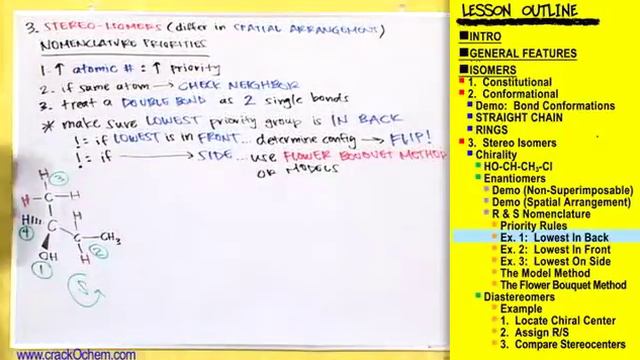 3. STEREO-ISOMERS (differ in SPATIAL ARRANGEMENT)
NOMENCLATURE PRIORITIES
1. ↑ atomic # = ↑ priority
2. if same atom → CHECK NEIGHBOR
3. treat a DOUBLE BOND as 2 single bonds
* make sure LOWEST priority group is IN BACK
!= if LOWEST is in FRONT... determine config → FLIP!
!= if → SIDE... use FLOWER BOUQUET METHOD
OR MODELS
H 3
H C H
H 4 C H
C CH3
OH H 2
1 S
www.crackOchem.com
LESSON OUTLINE
INTRO
GENERAL FEATURES
ISOMERS
1. Constitutional
2. Conformational
Demo: Bond Conformations
STRAIGHT CHAIN
RINGS
3. Stereo Isomers
Chirality
HO-CH-CH3-Cl
Enantiomers
Demo (Non-Superimposable)
Demo (Spatial Arrangement)
R & S Nomenclature
Priority Rules
Ex. 1: Lowest In Back
Ex. 2: Lowest In Front
Ex. 3: Lowest On Side
The Model Method
The Flower Bouquet Method
Diastereomers
Example
1. Locate Chiral Center
2. Assign R/S
3. Compare Stereocenters